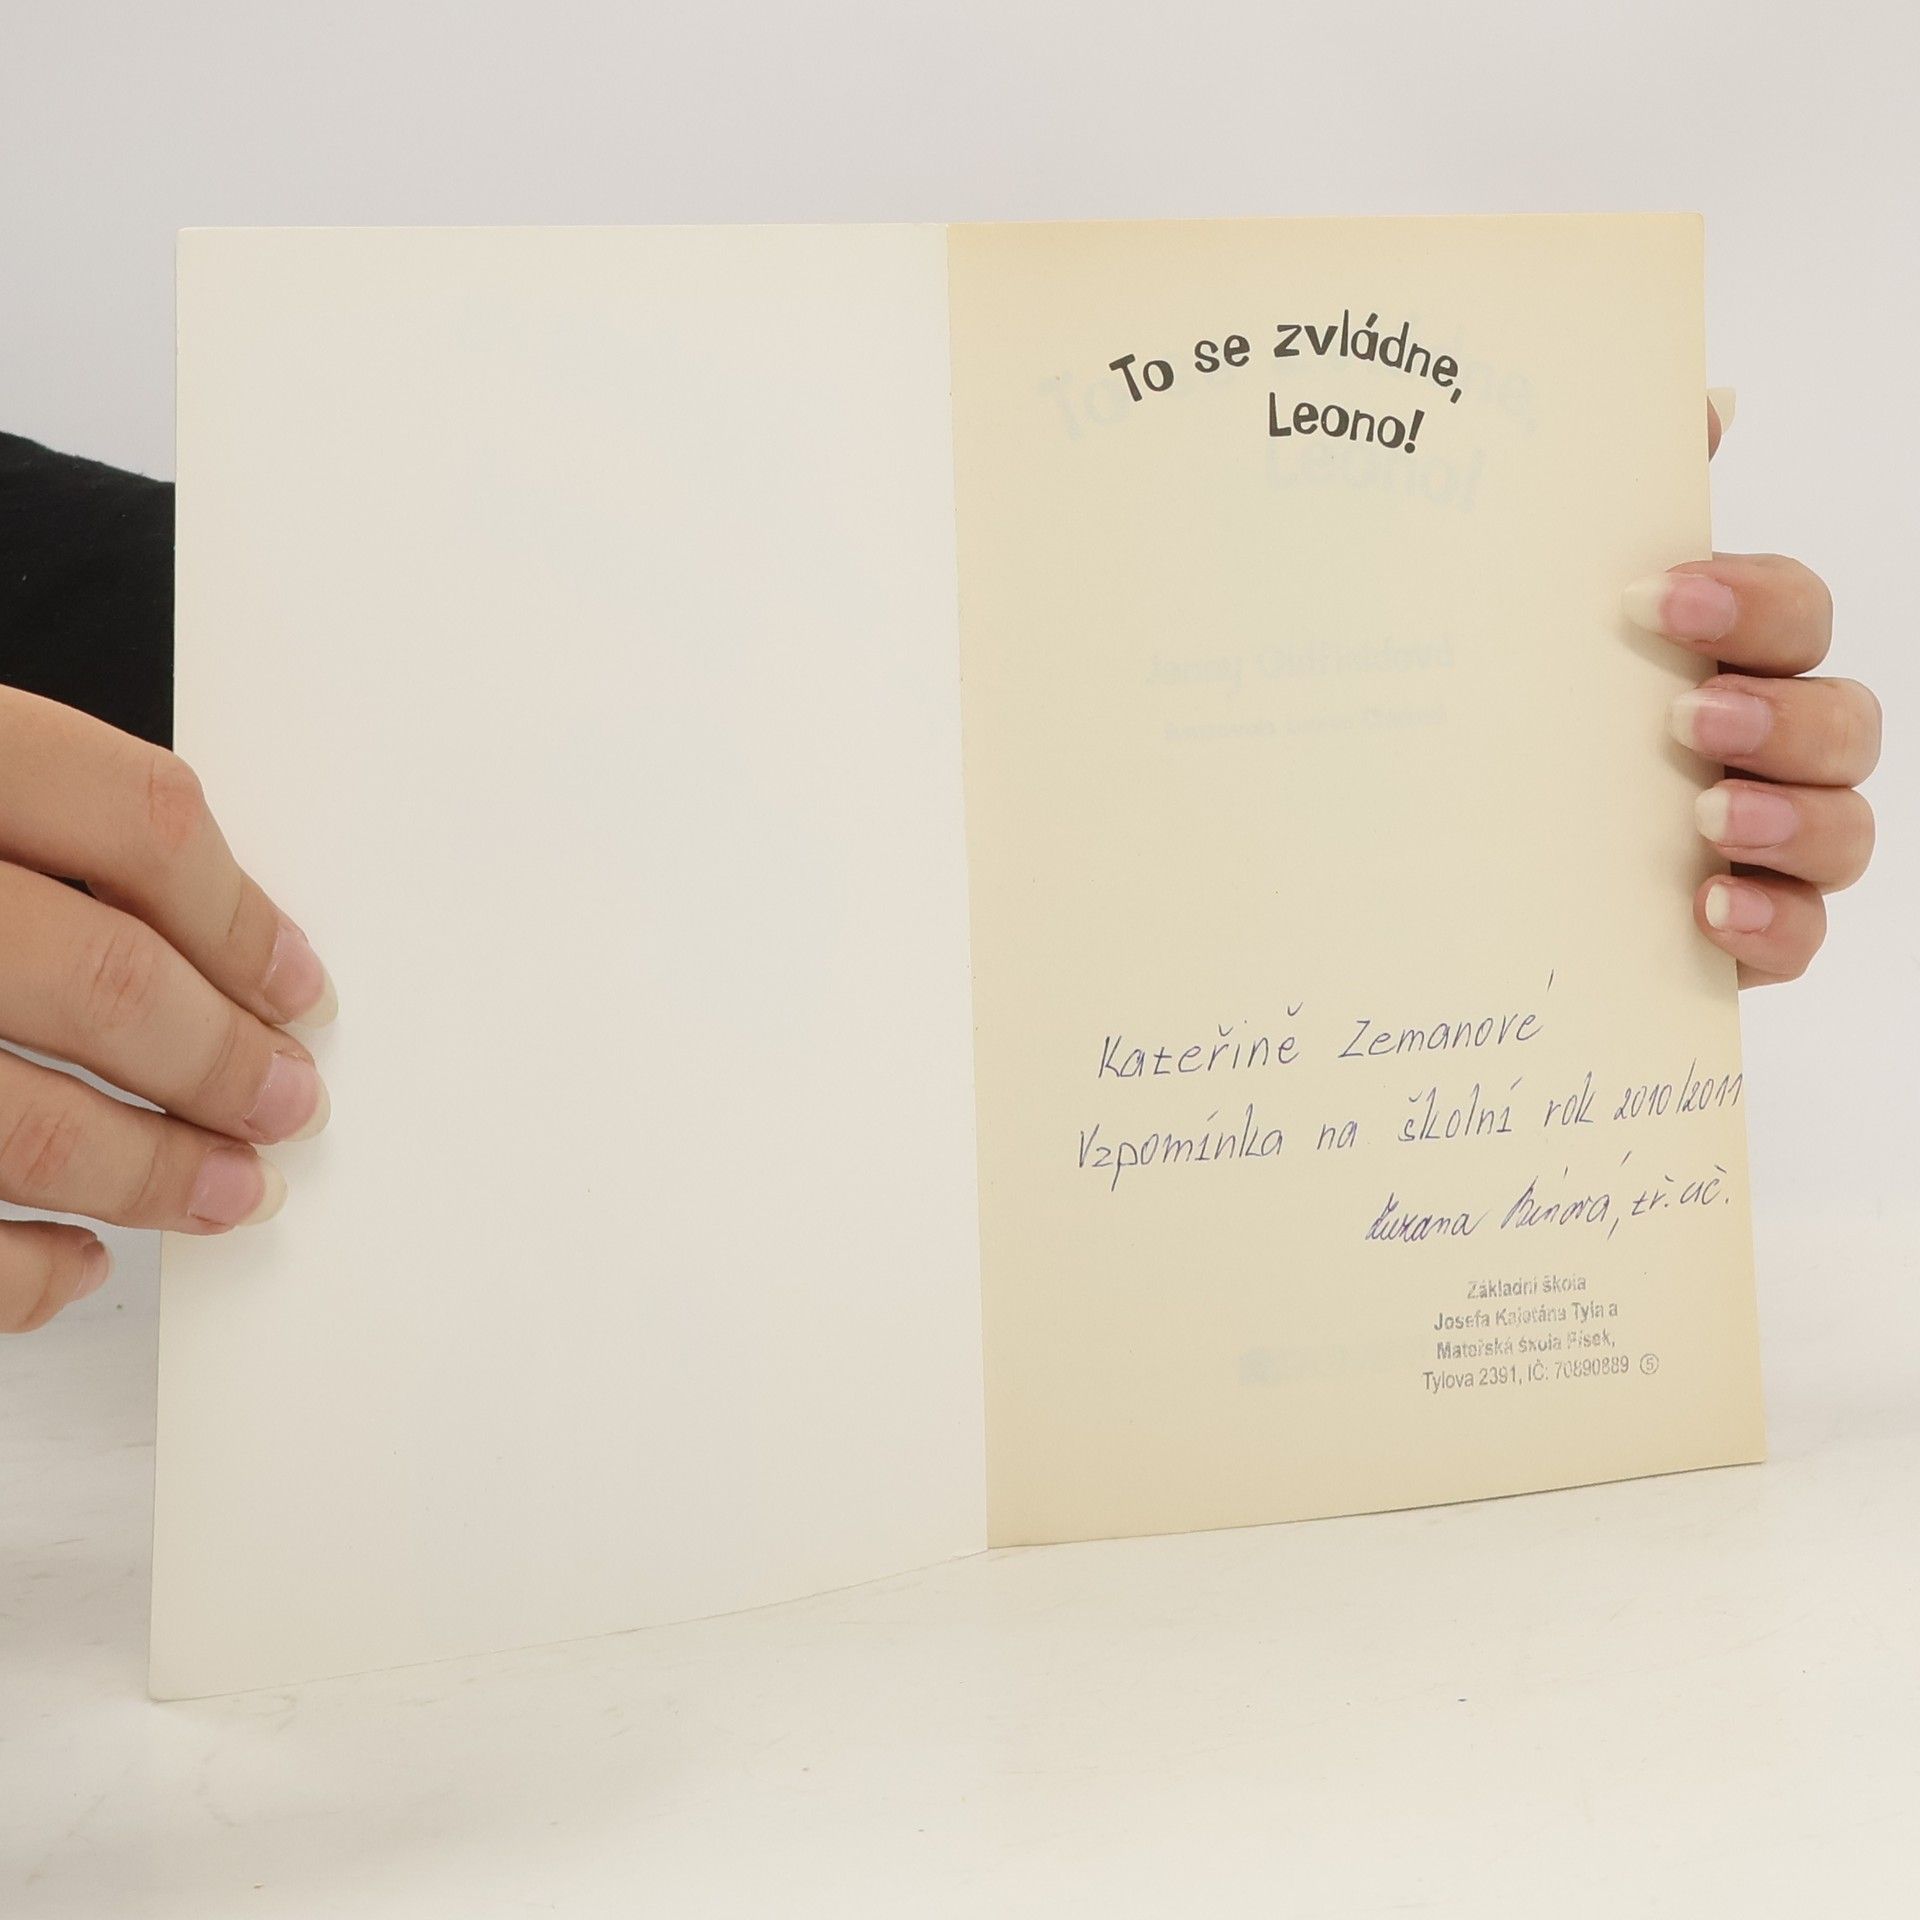 To se zvládne,
Leono!
Kateřině Zemanové
Vzpomínka na školní rok 2010/2011
Zuzana tř. uč.
Základní škola
Josefa Kajetána Tyla a
Mateřská škola Písek,
Tylova 2391, IČ: 70890889 ⑤